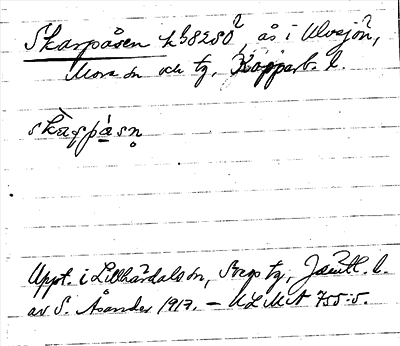 Skarpåsen kb8280², ås i Ulvsjön,
Mora sn och tg, Kopparb. l.
skàrpá̠sn̥
Uppt. i Lillhärdals sn, Svegs tg, Jämtl. l.
av S. Åsander 1917. – ULMA 755:5.